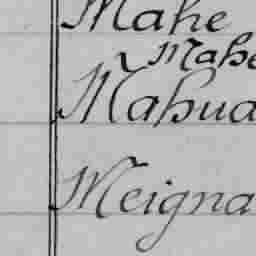 Mahe
Mahe
Mahua
Meigna